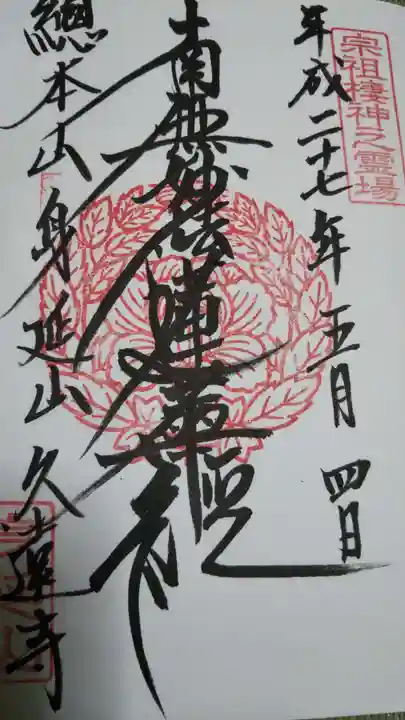 宗祖棲神之霊場
平成二十七年五月四日
南無妙法蓮華経
總本山身延山久遠寺